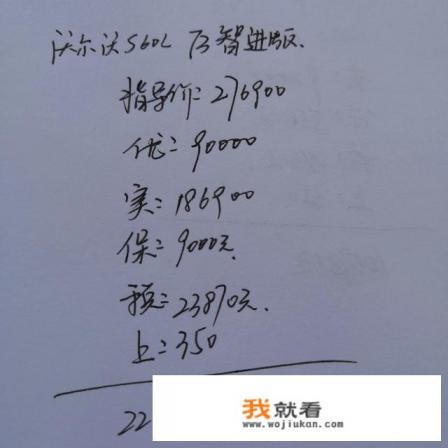 沃尔沃S60L T3智进版.
指导价=276900
优=90000
实=186900
保=9000元.
预=23870元.
上=350
22
我就看
www.wojiukan.com